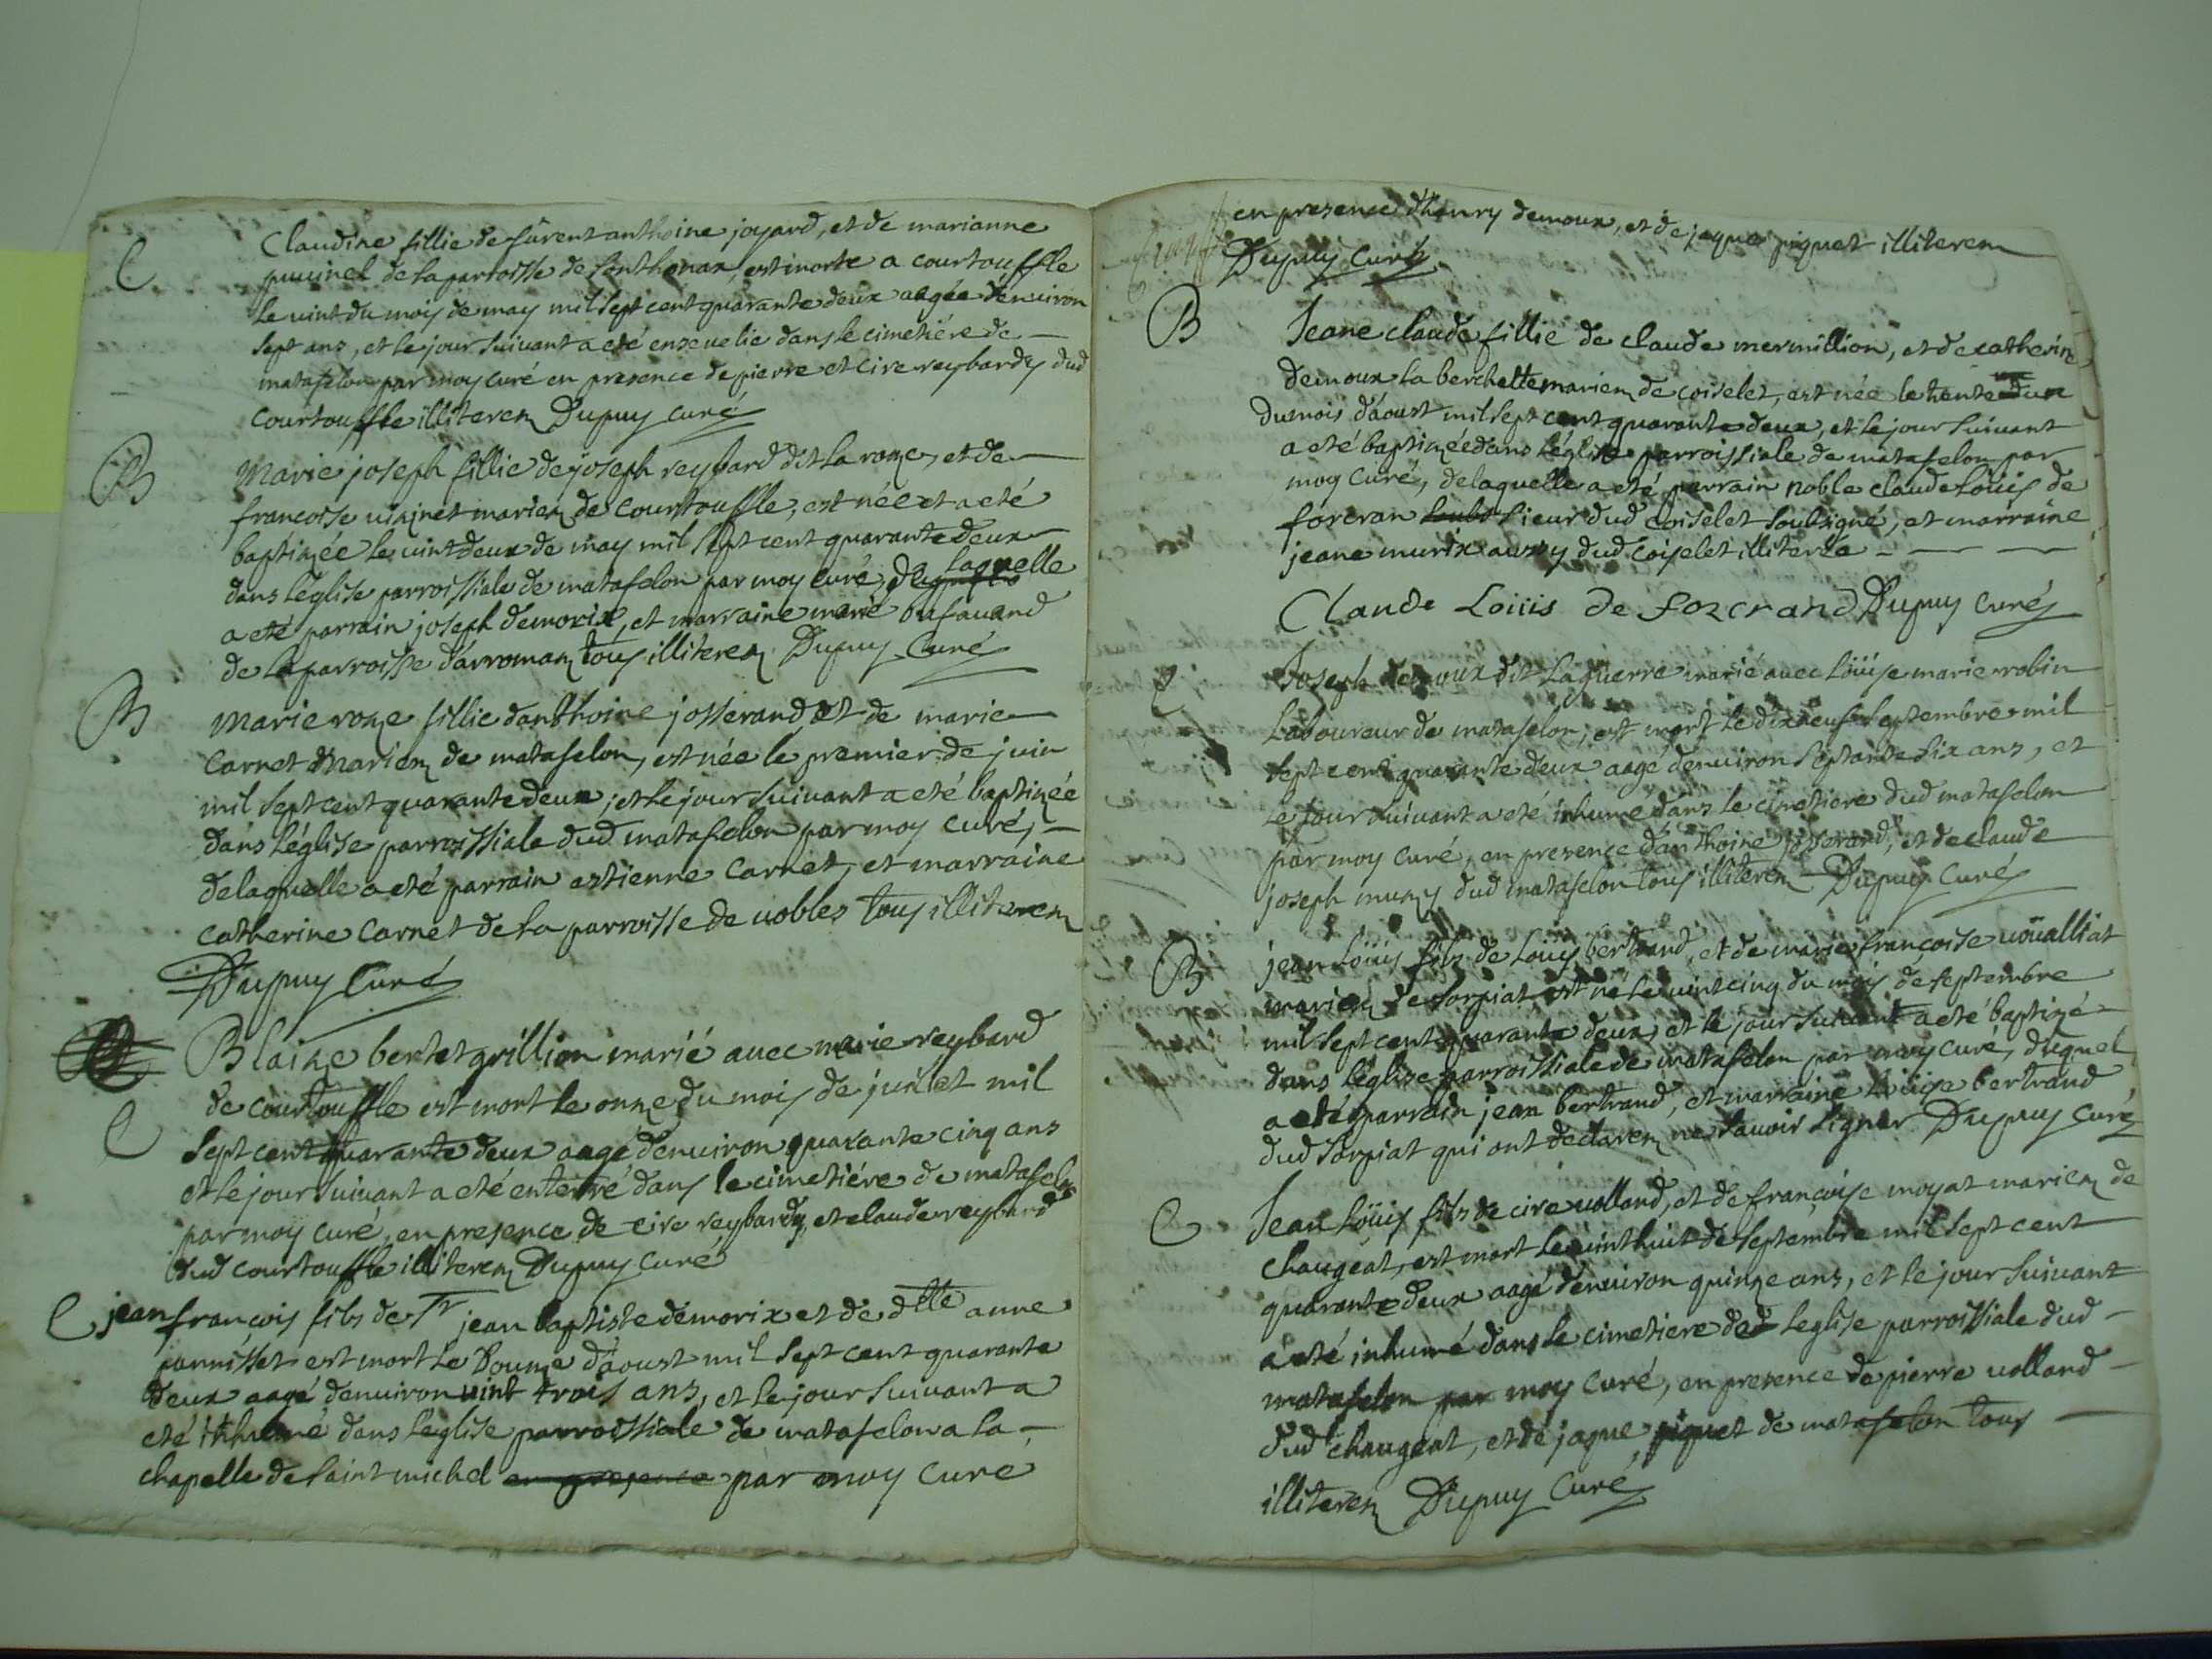 Claudine fillie de fûrent anthoine joyard, et de marianne
puuinel de la parroisse de sonthonax, est morte a courtouffle
C
le uint du mois de may mil sept cent quarante deux aagée denuiron
sept ans, et le jour suiuant a eté enseuelie dans le cimetiére de —
matafelon par moy curé en presence de pierre et cire reybardz dud
courtouffle illiterez Dupuy curé
B
Marie joseph fillie de joseph reybard dit la roze, et de —
francoise uizinet mariez de courtouffle, est née et a eté
baptizée le uint deux de may mil sept cent quarante deux
dans léglise parroissiale de matafelon par moy curé, de laquelle
a eté parrain joseph demorix, et marraine marie bufauand
de la parroisse d'arromaz tous illiterez Dupuy Curé
B
Marie roze fillie danthoine josserand et de marie
Carnet Mariez de matafelon, est née le premier de juin
mil sept cent quarante deux, et le jour suiuant a eté baptizée
dans léglise parroissiale dud matafelon par moy curé, —
delaquelle a eté parrain estienne Carnet, et marraine
Catherine Carnet de la parroisse de uobles tous illiterez
Dupuy Curé
Blaize bertetgrillion marié auec marie reybard
de courtouffle est mort le onze du mois de juilet mil
C
sept cent quarante deux aagé denuiron quarante cinq ans
et le jour suiuant a eté enterré dans le cimetiére de matafelon
par moy curé, en presence de cire reybardz, et claude reybard
dud courtouffle illiterez Dupuy curé
C jean françois fils de Sr jean baptiste demorix et de dtte anne
parnisset est mort le Douze d'aoust mil sept cent quarante
deux aagé denuiron uint trois ans, et le jour suiuant a
eté inhumé dans léglise parroissiale de matafelon a la —
chapelle de saint michel en presence par moy curé
en presence d'henry demoux, et de jaque piquet illiterez
Dupuy Curé
B
Jeane claude fillie de claude mermillion, et de catherine
demoux la berchette mariez de coiselet, est née le trente un
du mois d'aoust mil sept cent quarante deux, et le jour suiuant
a eté baptizée dans léglise parroissiale de matafelon par
moy Curé, delaquelle a eté parrain noble claude Loüis de
forcran soubs sieur dud Coiselet soubsigné, et marraine
jeane murix aussy dud coiselet illiterée - — — —
Claude Loüis De forcrand Dupuy Curé
C
Joseph demoux dit la guerre marié auec Loüise marie robin
Laboureur de matafelon, est mort le dix neuf septembre mil
sept cent quarante deux aagé denuiron septante six ans, et
le jour suiuant a eté inhumé dans le cimetiere dud matafelon
par moy curé, en presence d'anthoine josserand, et de claude
joseph muzy dud matafelon tous illiterez Dupuy Curé
B
jean Loüis fils de Loüis bertrand, et de marie françoise uoüalliat
mariez de sorpiat, est né le uint cinq du mois de septembre
mil sept cent quarante deux, et le jour suiuant a eté baptizé
dans léglise parroissiale de matafelon par moy curé, duquel
a eté parrain jean bertrand, et marraine Loüise bertrand
dud sorpiat qui ont declarez ne sauoir signer Dupuy Curé
C
Jean Loüis fils de cire uolland, et de françoise moyat mariez de
Chaugeat, est mort le uint huit de septembre mil sept cent
quarante deux aagé denuiron quinze ans, et le jour suiuant
a eté inhumé dans le cimetiere ded leglise parroissiale dud —
matafelon par moy curé, en presence de pierre uolland —
dud chaugeat, et de jaque piquet de matafelon tous —
illiterez Dupuy Curé